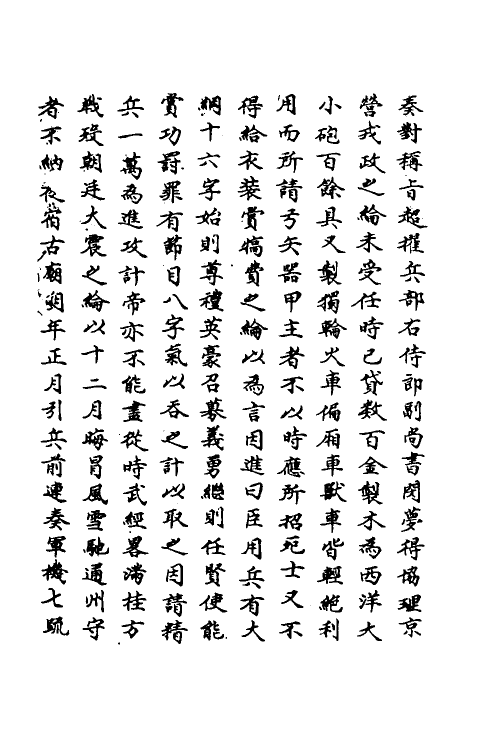 奏對稱旨超擢兵部右侍郎副尚書閔夢得協理京
營戎政之綸未受任時已貸数百金製木為西洋大
小砲百餘具又製獨輪火車偏廂車獸車皆輕絶利
用而所請弓矢器甲主者不以時應所招死士又不
得給衣装賞犒費之綸以為言因進曰臣用兵有大
綱十六字始則尊禮英豪召募義勇繼則任賢使能
賞功罸罪有節目八字氣以吞之計以取之因請精
兵一萬為進攻計帝亦不能盡從時武經畧滿桂方
戦殁朝廷大震之綸以十二月晦冒風雪馳通州守
者不納夜宿古廟朔年正月引兵前連奏軍機七疏